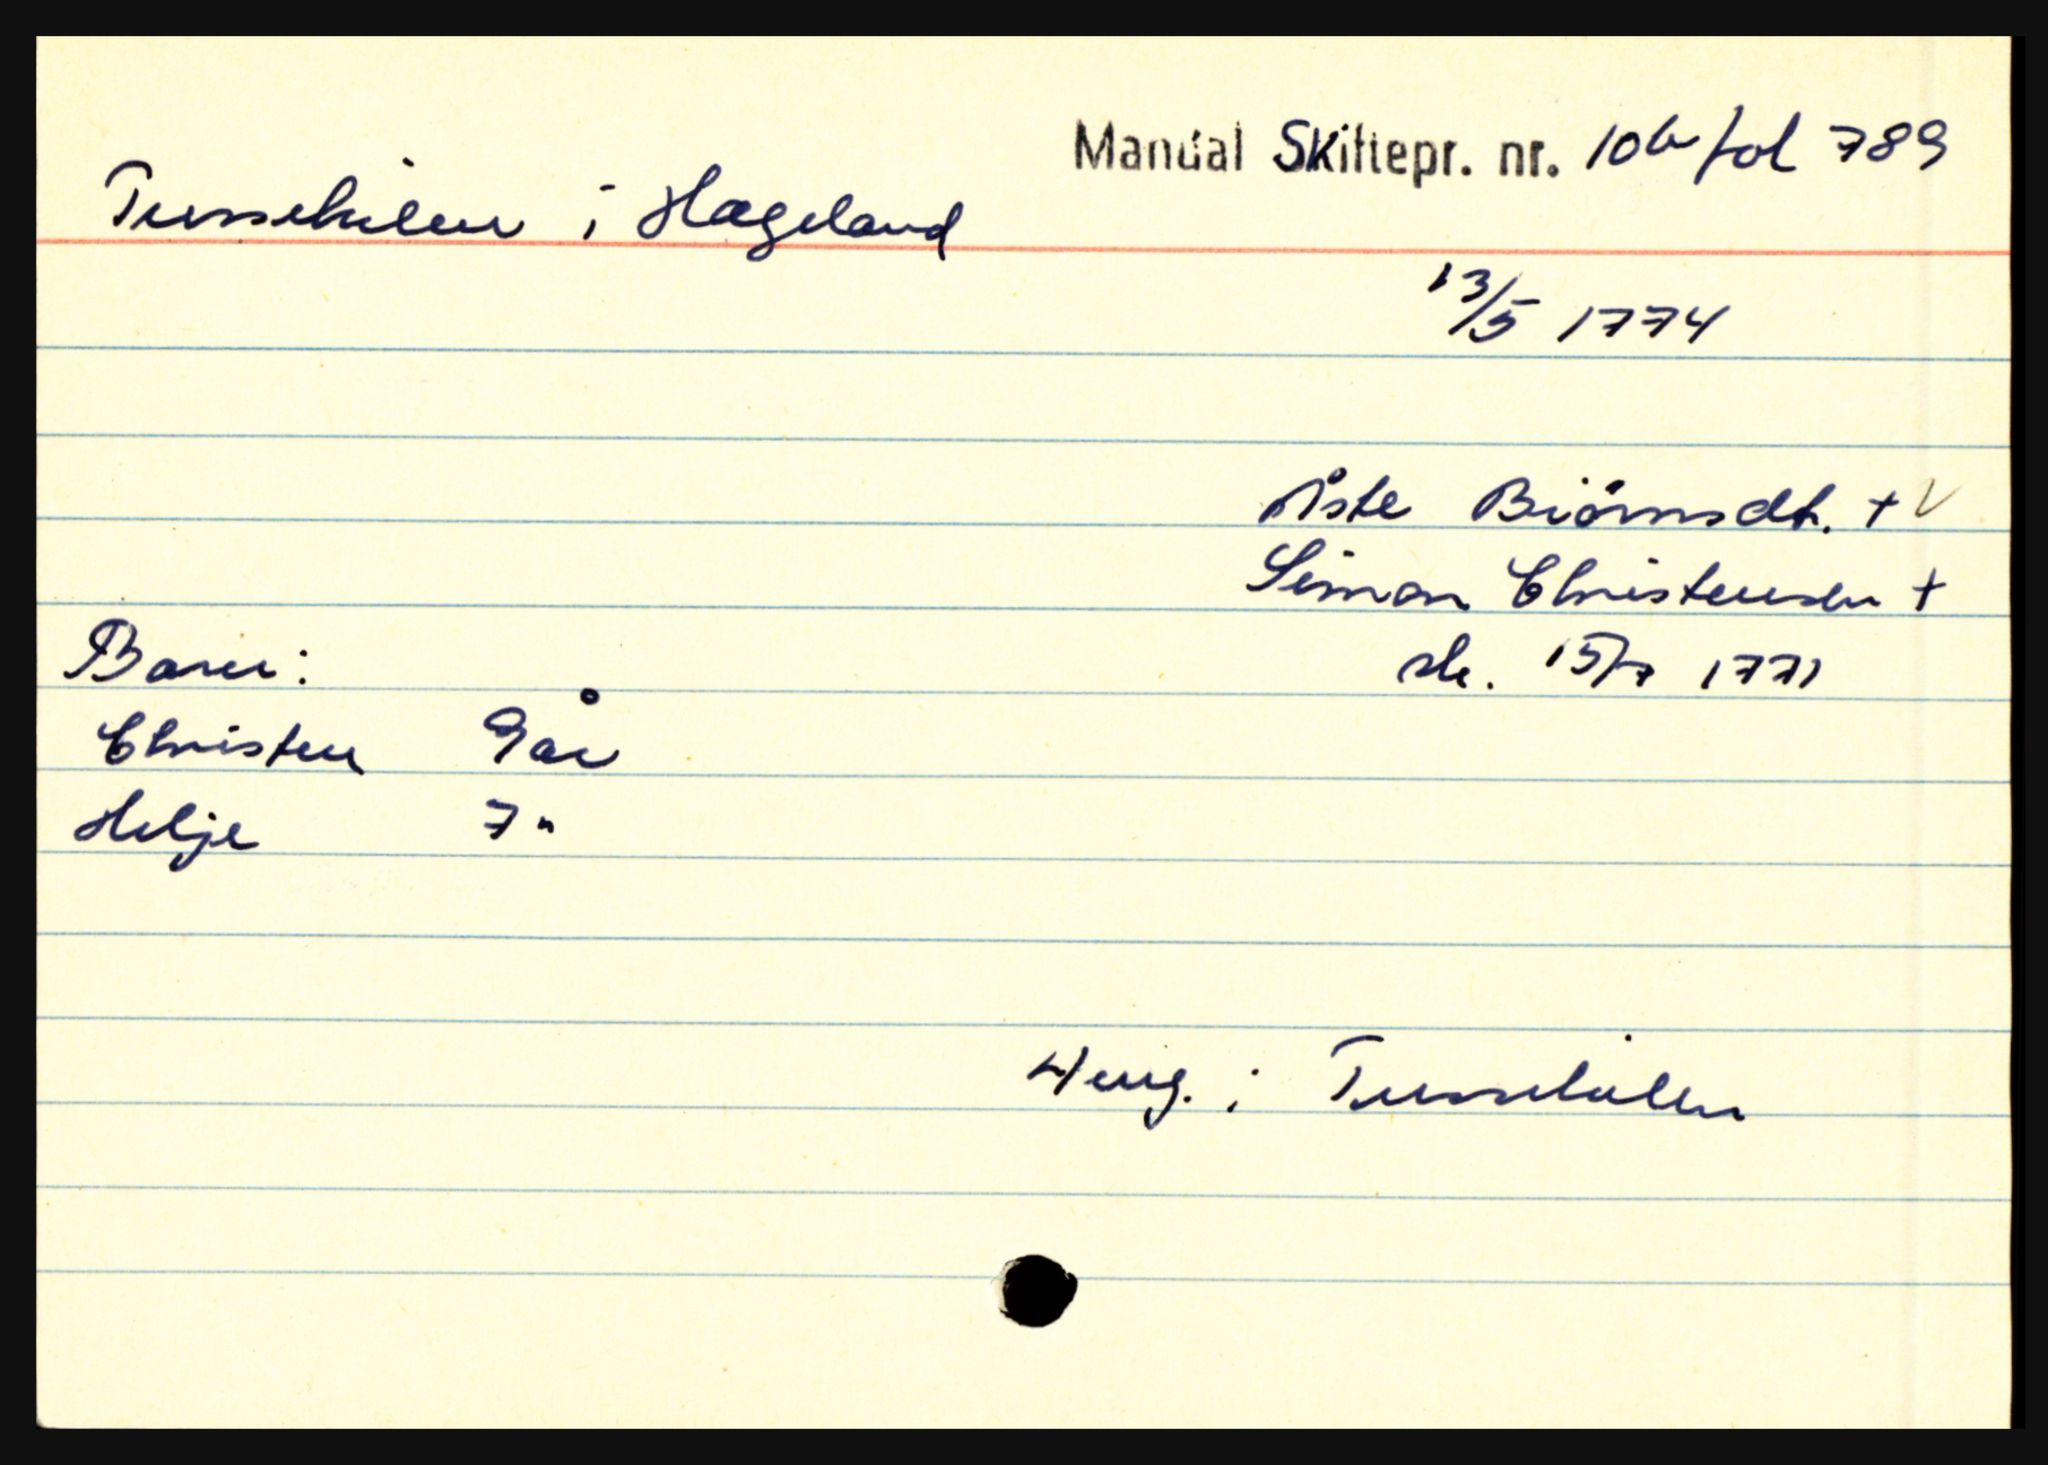 Mandal Skiftepr. nr. 10b fol 789
Tussehilen i Hægeland
13/5 1774
Åste Biörnsdt. + V
Simon Christensen +
sk. 15/7 1771
Barn:
Christen 9 år
Helje 7 "
4 eng. i Tussehilen